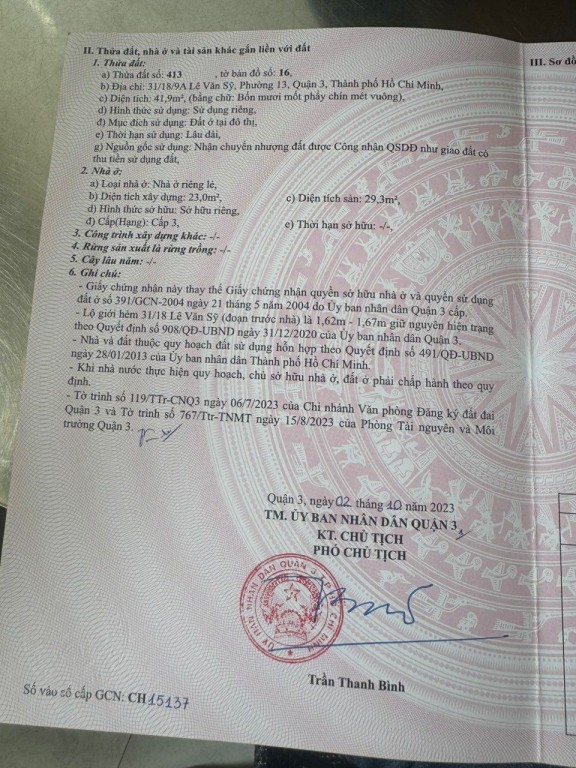 II. Thửa đất, nhà ở và tài sản khác gắn liền với đất
III. Sơ đồ
1. Thửa đất:
a) Thửa đất số: 413 , tờ bản đồ số: 16,
b) Địa chỉ: 31/18/9A Lê Văn Sỹ, Phường 13, Quận 3, Thành phố Hồ Chí Minh,
c) Diện tích: 41,9m², (bằng chữ: Bốn mươi mốt phẩy chín mét vuông),
d) Hình thức sử dụng: Sử dụng riêng,
đ) Mục đích sử dụng: Đất ở tại đô thị,
e) Thời hạn sử dụng: Lâu dài,
g) Nguồn gốc sử dụng: Nhận chuyển nhượng đất được Công nhận QSDĐ như giao đất có
thu tiền sử dụng đất,
2. Nhà ở:
a) Loại nhà ở: Nhà ở riêng lẻ,
b) Diện tích xây dựng: 23,0m², c) Diện tích sàn: 29,3m²,
d) Hình thức sở hữu: Sở hữu riêng,
đ) Cấp(Hạng): Cấp 3, e) Thời hạn sở hữu: -/-,
3. Công trình xây dựng khác: -/-
4. Rừng sản xuất là rừng trồng: -/-
5. Cây lâu năm: -/-
6. Ghi chú:
- Giấy chứng nhận này thay thế Giấy chứng nhận quyền sở hữu nhà ở và quyền sử dụng
đất ở số 391/GCN-2004 ngày 21 tháng 5 năm 2004 do Ủy ban nhân dân Quận 3 cấp.
- Lộ giới hẻm 31/18 Lê Văn Sỹ (đoạn trước nhà) là 1,62m - 1,67m giữ nguyên hiện trạng
theo Quyết định số 908/QĐ-UBND ngày 31/12/2020 của Ủy ban nhân dân Quận 3.
- Nhà và đất thuộc quy hoạch đất sử dụng hỗn hợp theo Quyết định số 491/QĐ-UBND
ngày 28/01/2013 của Ủy ban nhân dân Thành phố Hồ Chí Minh.
- Khi nhà nước thực hiện quy hoạch, chủ sở hữu nhà ở, đất ở phải chấp hành theo quy
định.
- Tờ trình số 119/TTr-CNQ3 ngày 06/7/2023 của Chi nhánh Văn phòng Đăng ký đất đai
Quận 3 và Tờ trình số 767/Ttr-TNMT ngày 15/8/2023 của Phòng Tài nguyên và Môi
trường Quận 3.
Quận 3, ngày 02 tháng 10 năm 2023
TM. ỦY BAN NHÂN DÂN QUẬN 3
KT. CHỦ TỊCH
PHÓ CHỦ TỊCH
ỦY BAN NHÂN DÂN QUẬN 3 T.P HỒ CHÍ MINH
Trần Thanh Bình
Số vào sổ cấp GCN: CH15137